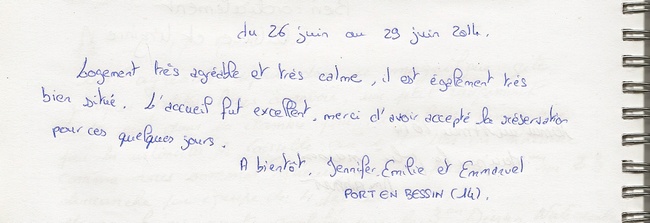 du 26 juin au 29 juin 2014.
Logement très agréable et très calme, il est également très
bien situé. L'accueil fut excellent, merci d'avoir accepté la réservation
pour ces quelques jours.
A bientôt. Jennifer, Emilie et Emmanuel
PORT EN BESSIN (14).